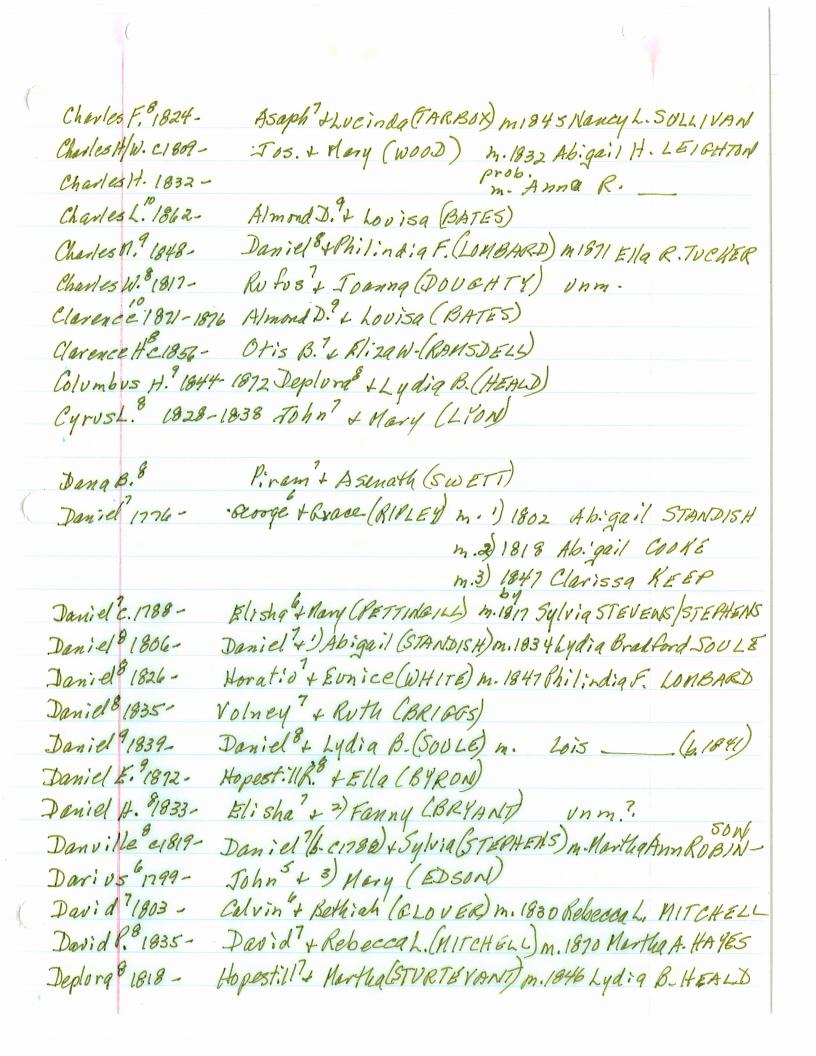 Charles F.⁸ 1824- Asaph⁷ + Lucinda (TARBOX) m 1845 Nancy L. SULLIVAN
Charles H/W. c1809- Jos. + Mary (WOOD) m. 1832 Abigail H. LEIGHTON
Charles H. 1832- prob. m. Anna R. ___
Charles L.¹⁰ 1862- Almond D.⁹ + Lovisa (BATES)
Charles N.⁹ 1848- Daniel⁸ + Philindia F. (LOMBARD) m 1871 Ella R. TUCKER
Charles W.⁸ 1817- Rufus⁷ + Joanna (DOUGHTY) unm.
Clarence¹⁰ 1871-1876 Almond D.⁹ + Lovisa (BATES)
Clarence H⁸ c1856- Otis B.⁷ + Eliza W. (RAMSDELL)
Columbus H.⁹ 1844-1872 Deplura⁸ + Lydia B. (HEALD)
Cyrus L.⁸ 1828-1838 John⁷ + Mary (LYON)
Dana B.⁸ Piram⁷ + Asenath (SWETT)
Daniel⁷ 1776- George⁶ + Grace (RIPLEY) m. 1) 1802 Abigail STANDISH
m. 2) 1818 Abigail COOKE
m. 3) 1847 Clarissa KEEP
Daniel⁷ c. 1788- Elisha⁶ + Mary (PETTINGILL) m. by 1817 Sylvia STEVENS/STEPHENS
Daniel⁸ 1806- Daniel⁷ + 1) Abigail (STANDISH) m. 1834 Lydia Bradford SOULE
Daniel⁸ 1826- Horatio⁷ + Eunice (WHITE) m. 1847 Philindia F. LOMBARD
Daniel⁸ 1835- Volney⁷ + Ruth (BRIGGS)
Daniel⁹ 1839- Daniel⁸ + Lydia B. (SOULE) m. Lois ______ (b. 1841)
Daniel E.⁹ 1872- Hopestill R.⁸ + Ella (BYRON)
Daniel H.⁸ 1833- Elisha⁷ + 2) Fanny (BRYANT) unm.?
Danville⁸ c1819- Daniel⁷ (b. c1788) + Sylvia (STEPHENS) m. Martha Ann ROBIN-SON
Darius⁶ 1799- John⁵ + 3) Mary (EDSON)
David⁷ 1803- Calvin⁶ + Bethiah (GLOVER) m. 1830 Rebecca L. MITCHELL
David P.⁸ 1835- David⁷ + Rebecca L. (MITCHELL) m. 1870 Martha A. HAYES
Deplora⁸ 1818- Hopestill⁷ + Martha (STURTEVANT) m. 1846 Lydia B. HEALD